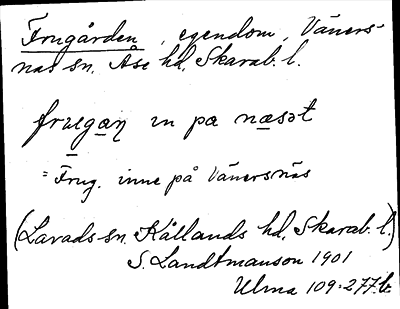 Frugården, egendom, Väners-
näs sn, Åse hd, Skarab. l.
fruegaŋ in pa næsət
= Frug. inne på Vänersnäs
(Lavads sn, Kållands hd, Skarab. l.)
S. Landtmanson 1901
Ulma 109:277.b.